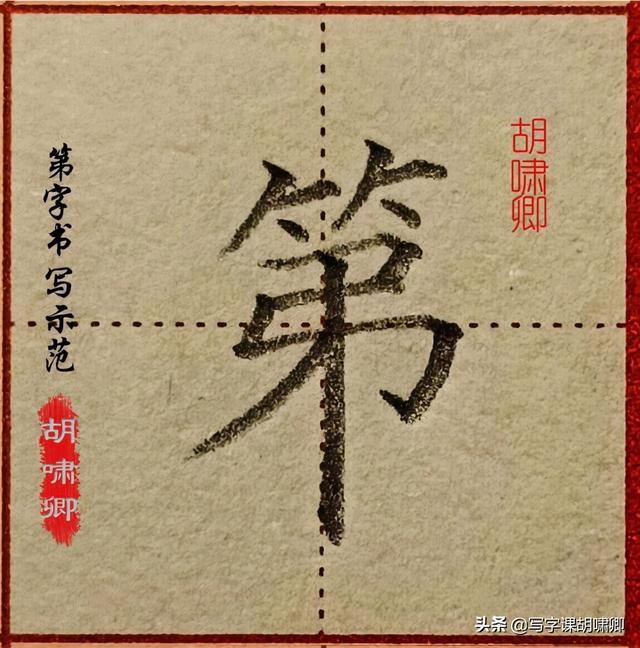 第
第字书写示范
胡啸卿
胡啸卿
头条 @写字课胡啸卿